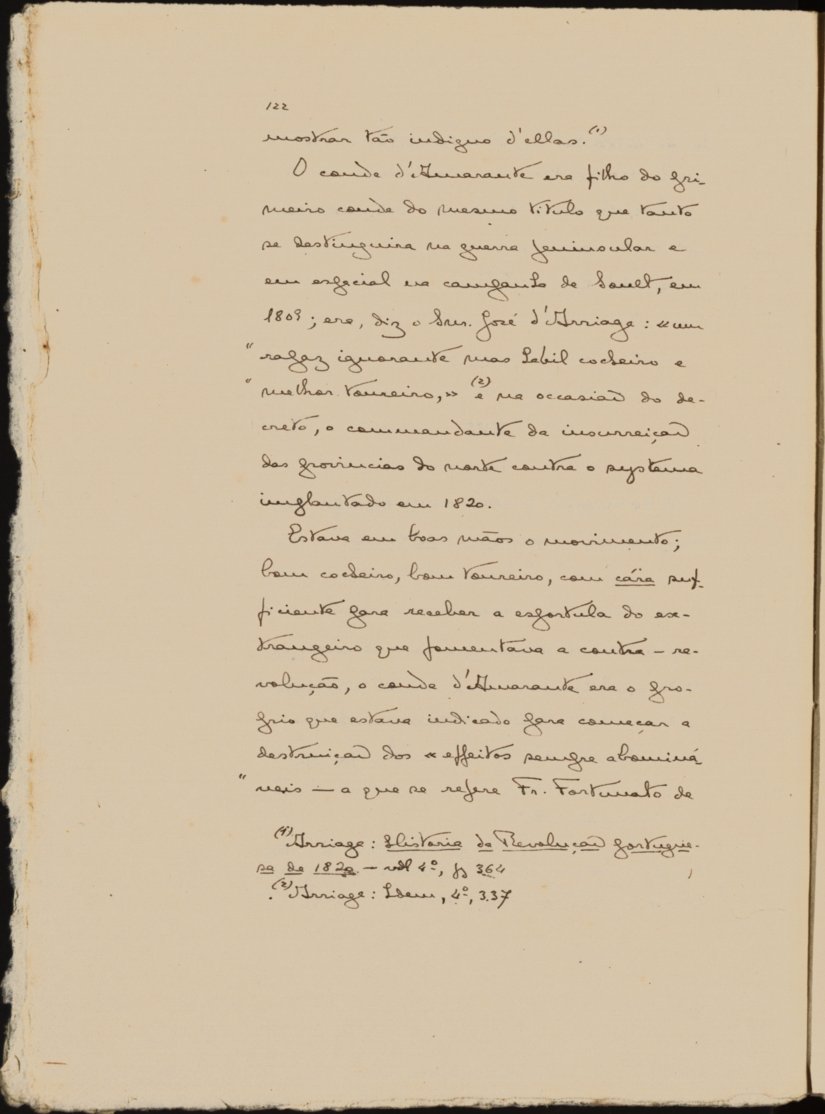 122
mostrar tão indigno d'ellas. (1)
O conde d'Amarante era filho do pri-
meiro conde do mesmo titulo que tanto
se destinguira na guerra peninsular e
em especial na campanha de Soult, em
1809; era, diz o Snr. José d'Arriaga: «um
" rapaz ignorante mas habil cocheiro e
" melhor toureiro,» (2) e na occasião do de-
creto, o commandante da insurreição
das provincias do norte contra o systema
implantado em 1820.
Estava em boas mãos o movimento;
bom cocheiro, bom toureiro, com cára suf-
ficiente para receber a esportula do ex-
trangeiro que fomentava a contra-re-
volução, o conde d'Amarante era o pro-
prio que estava indicado para começar a
destruição dos «effeitos sempre abominá
" veis — a que se refere Fr. Fortunato de
(1) Arriaga: Historia da Revolução portugue-
sa de 1820 — vol 4º, pg 364
(2) Arriaga: Idem, 4º, 337